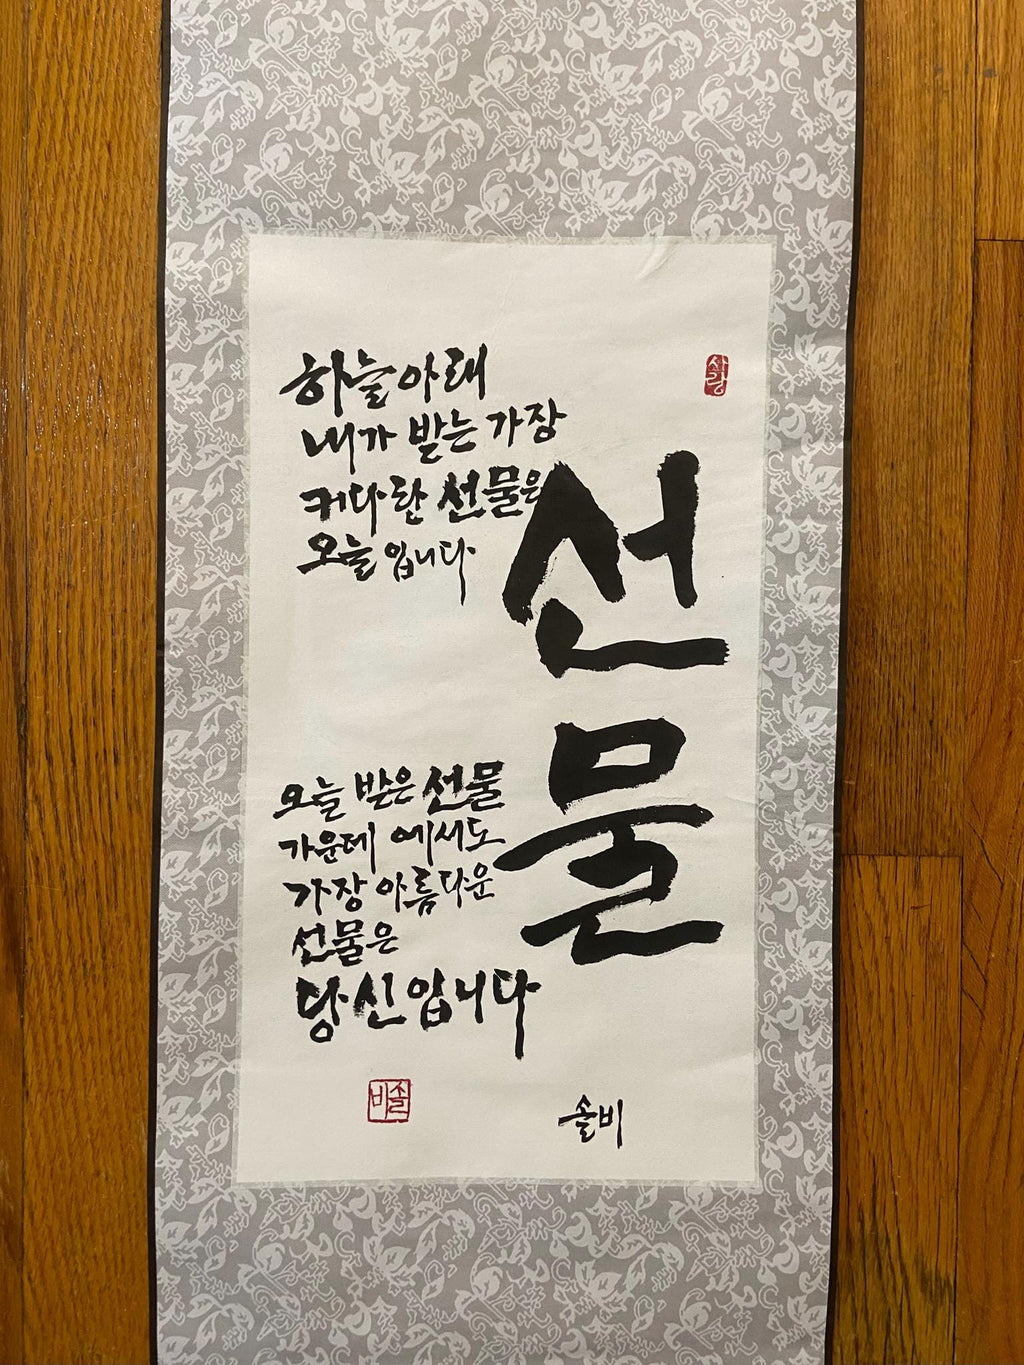 선물
하늘아래
내가 받는 가장
커다란 선물은
오늘입니다
오늘 받은 선물
가운데 에서도
가장 아름다운
선물은
당신입니다
솔비
사랑
솔비